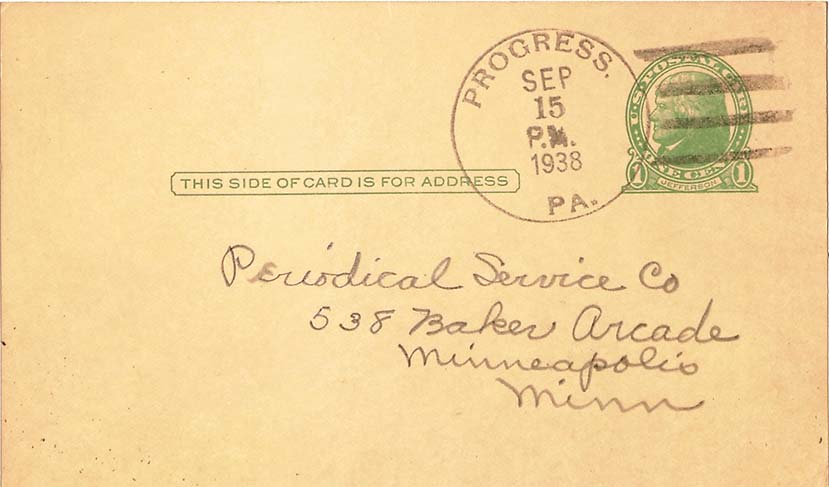 PROGRESS,
SEP
15
P.M.
1938
PA.
U.S. POSTAL CARD
1 ONE CENT 1
JEFFERSON
THIS SIDE OF CARD IS FOR ADDRESS
Periodical Service Co
538 Baker Arcade
Minneapolis
Minn